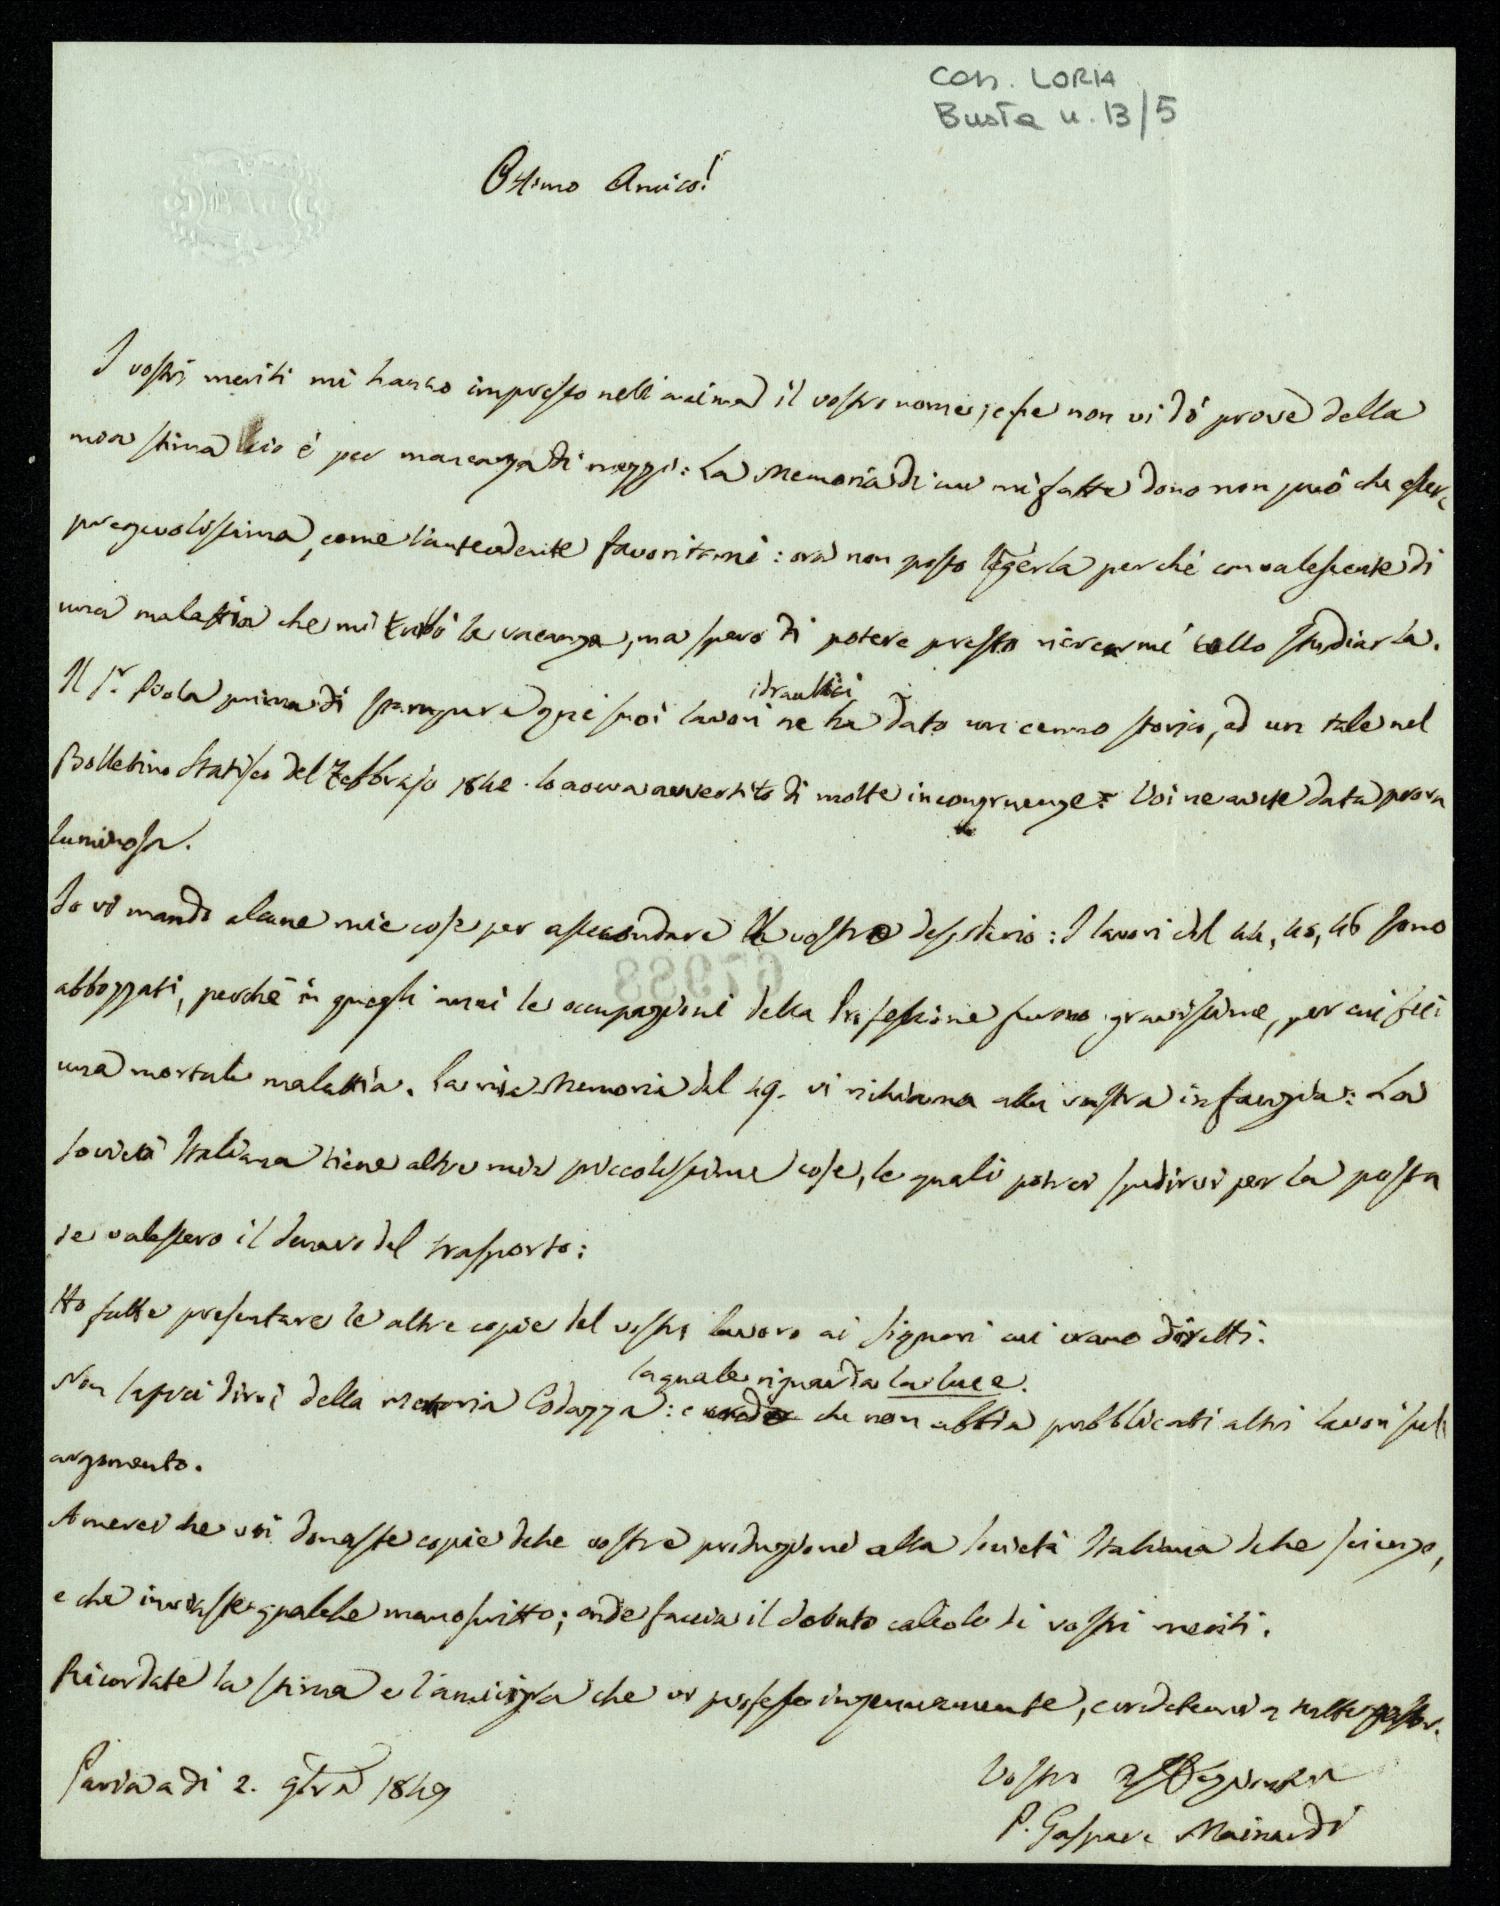 Con. LORIA
Busta n. 13/5
Ottimo Amico!
I vostri meriti mi hanno impresso nell'anima il vostro nome, e se non vi dò prove della
mia stima ciò è per mancanza di mezzi: La Memoria di cui mi fatte dono non può che essere
pregevolissima, come l'antecedente favoritami: ora non posso legerla perché convalescente di
una malattia che mi turbò le vacanze, ma spero di potere presto ricrearmi collo studiarla.
Il Sr. Piola prima di stampare que' suoi lavori idraulici ne ha dato un cenno storico, ed un tale nel
Bolletino Statisco del Febbrajo 1842 lo aveva avvertito di molte incongruenze: Voi ne avete data prova
luminosa.
Io vi mando alcune mie cose per assecondare il vostro desiderio: I lavori del 44, 45, 46 sono
abbozzati, perchè in quegli anni le occupazioni della Professione furono gravissime, per cui feci
una mortale malattia. La mia Memoria del 49. vi richiama alla vostra infanzia: La
Società Italiana tiene altre mie piccolissime cose, le quali potrei spedirvi per la posta
se valessero il denaro del trasporto:
Ho fatte presentare le altre copie del vostro lavoro ai Signori cui erano diretti.
Non saprei dirvi della memoria Codazza: la quale riguarda la luce. e credo che non abbia pubblicati altri lavori sull'
argomento.
Amerei che voi donaste copie delle vostre produzioni alla Società Italiana delle scienze,
e che inviaste qualche manoscritto; onde faccia il dobuto calcolo di vostri meriti.
Ricordate la stima e l'amicizia che vi professo ingenuamente, e credetemi a tutte
67988
Pavia a dì 2. 9bre 1849
Vostro
P. Gaspare Mainardi